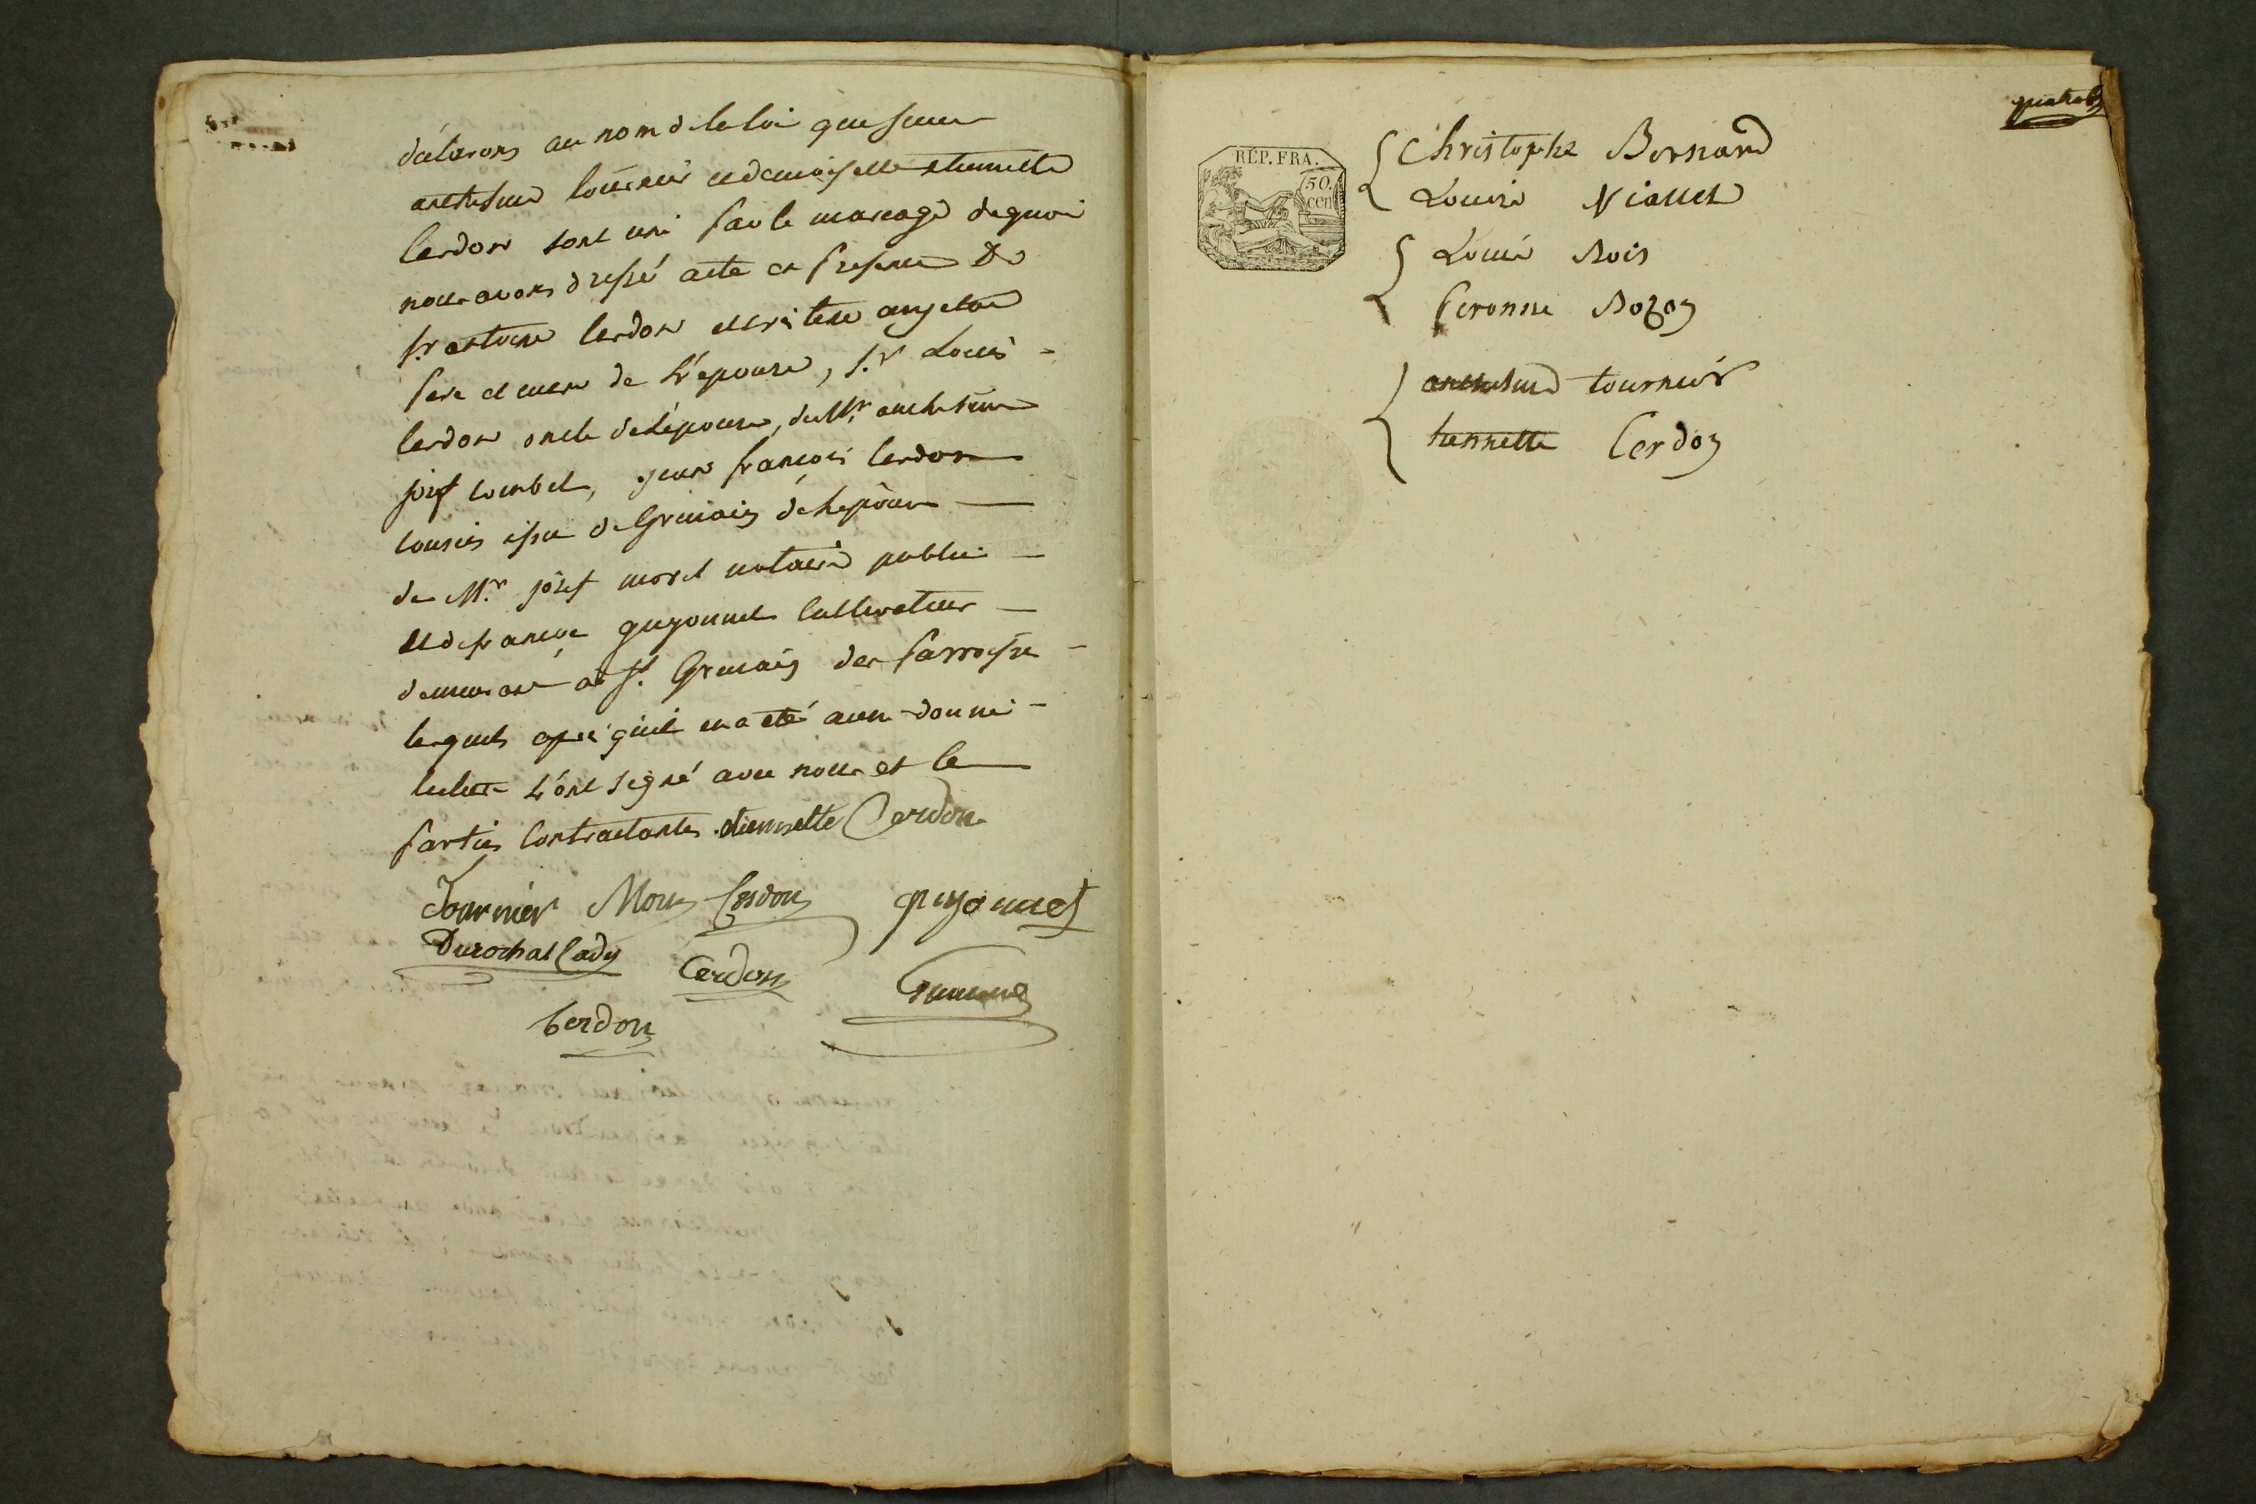 déclarons au nom de la loi que sieur
anthelme tournier et demoiselle etiennette
Cerdon sont uni par le mariage de quoi
nous avons dressé acte en presence de
sr antoine Cerdon et
pere et mere de l'épouse, s.r Louis
Cerdon oncle de l'épouse, de Mr. anthelme
josef jean françois Cerdon
cousin issu de Germain de l'epouse
de Mr. josef moret notaire public
et de françois guyonnet Cultivateur
demeurant à St. Germain de parroisse
lesquels après qu'il en a eté aussi donné
lecture l'ont signé avec nous et les
parties Contractantes. etiennette Cerdon
Tournier Cerdon guyonnet
Durochat
Cerdon
Cerdon
quatre
RÉP. FRA.
50. cen
Christophe Bernard
Louise Viallet
Louis Bois
Peronne Bozon
anthelme tournier
tiennette Cerdon